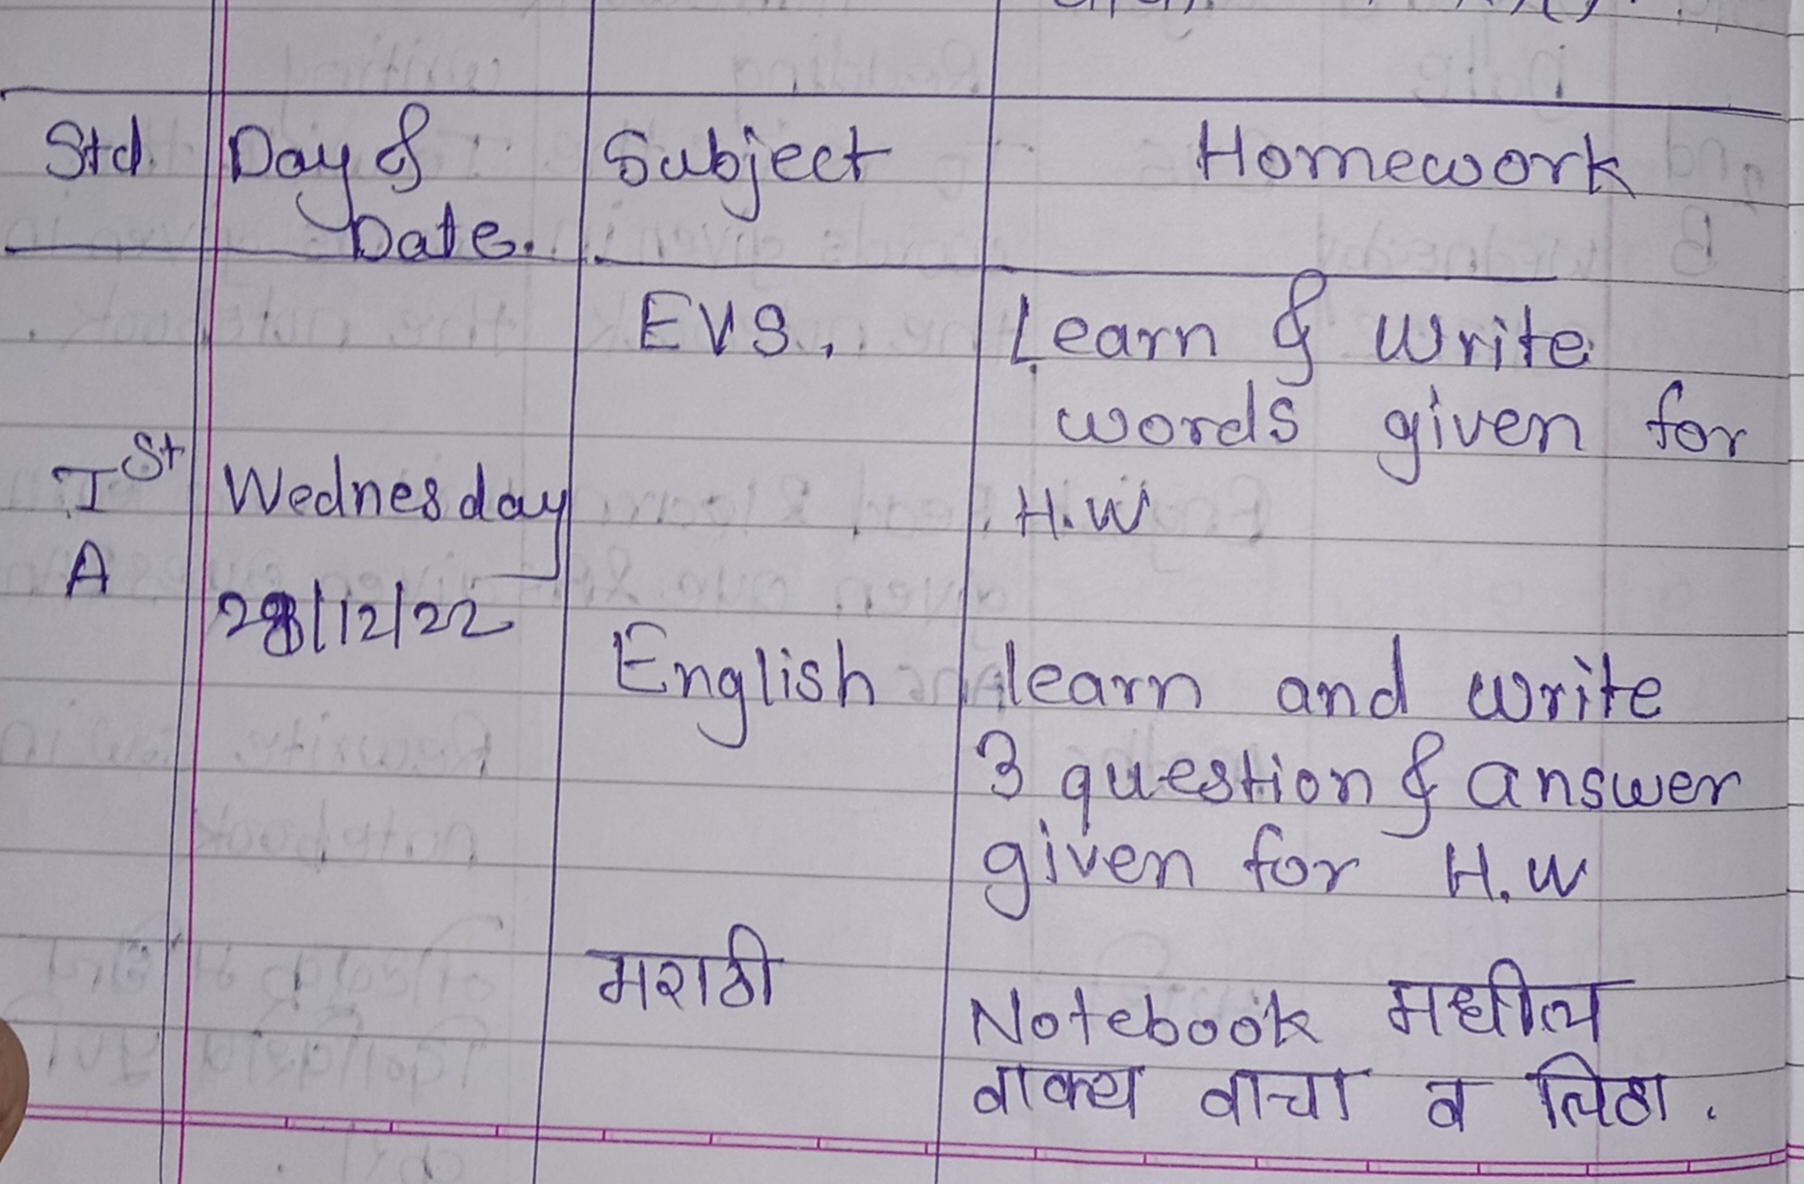 Std. Day & Subject Homework
Date.
EVS. Learn & write
words given for
Ist Wednesday H.W
A
28/12/22
English learn and write
3 question & answer
given for H.W
मराठी Notebook मधील
वाक्य वाचा व लिहा.